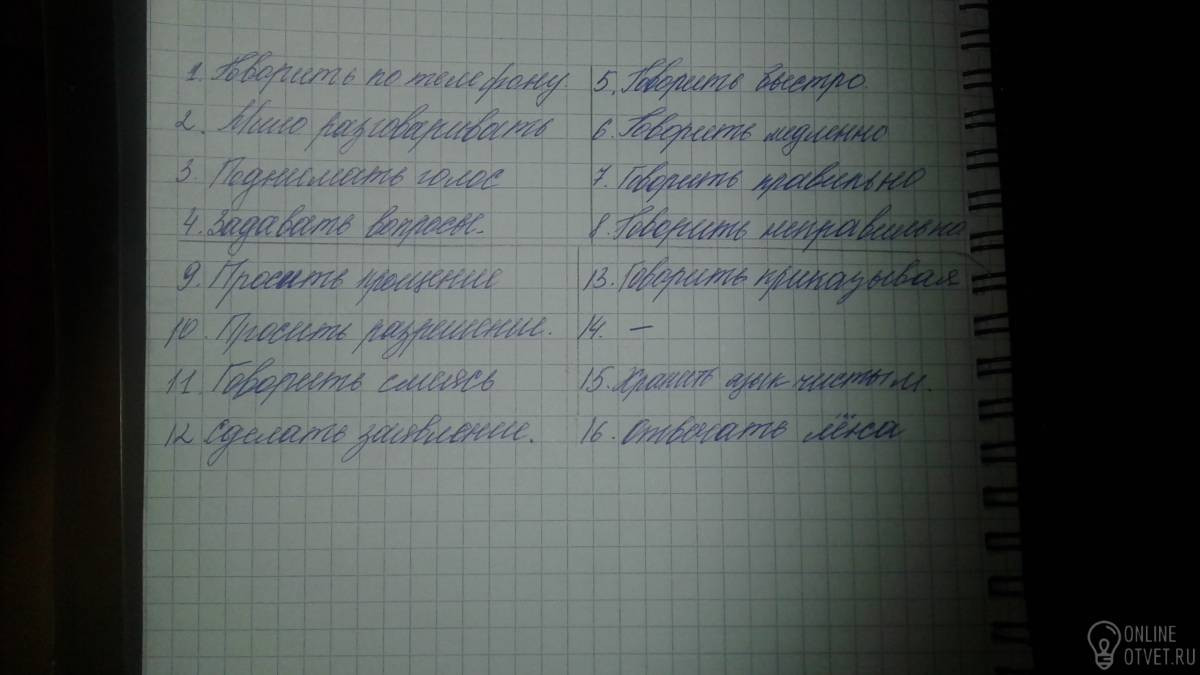 1. Говорить по телефону.
2. Мило разговаривать
3. Поднимать голос
4. Задавать вопросы.
5. Говорить быстро.
6. Говорить медленно
7. Говорить правильно
8. Говорить неправильно
9. Просить прощение
10. Просить разрешение.
11. Говорить смеясь
12 Сделать заявление.
13. Говорить приказывая
14. —
15. Хранить язык чистым.
16. Отвечать
ONLINE
OTVET.RU